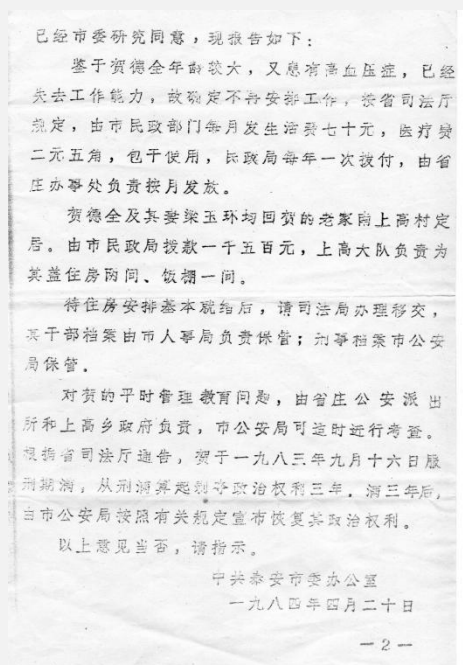 已经市委研究同意，现报告如下：
鉴于贺德全年龄较大，又患有高血压症，已经
失去工作能力，故确定不再安排工作，按省司法厅
规定，由市民政部门每月发生活费七十元，医疗费
二元五角，包干使用，民政局每年一次拨付，由省
庄办事处负责按月发放。
贺德全及其妻梁玉环均回贺的老家南上高村定
居。由市民政局拨款一千五百元，上高大队负责为
其盖住房两间、饭棚一间。
待住房安排基本就绪后，请司法局办理移交，
其干部档案由市人事局负责保管；刑事档案市公安
局保管。
对贺的平时管理教育问题，由省庄公安派出
所和上高乡政府负责，市公安局可适时进行考查。
根据省司法厅通告，贺于一九八三年九月十六日服
刑期满，从刑满算起剥夺政治权利三年。满三年后，
由市公安局按照有关规定宣布恢复其政治权利。
以上意见当否，请指示。
中共泰安市委办公室
一九八四年四月二十日
—2—